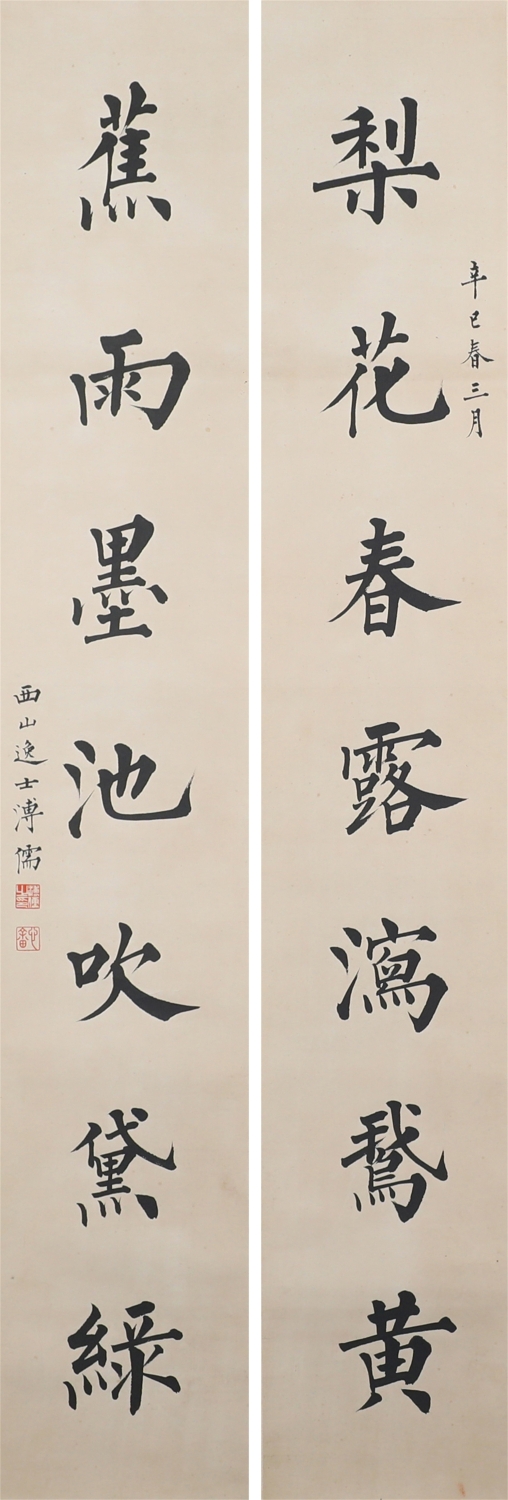 辛巳春三月
梨花春露瀉鵞黄
蕉雨墨池吹黛綠
西山逸士溥儒